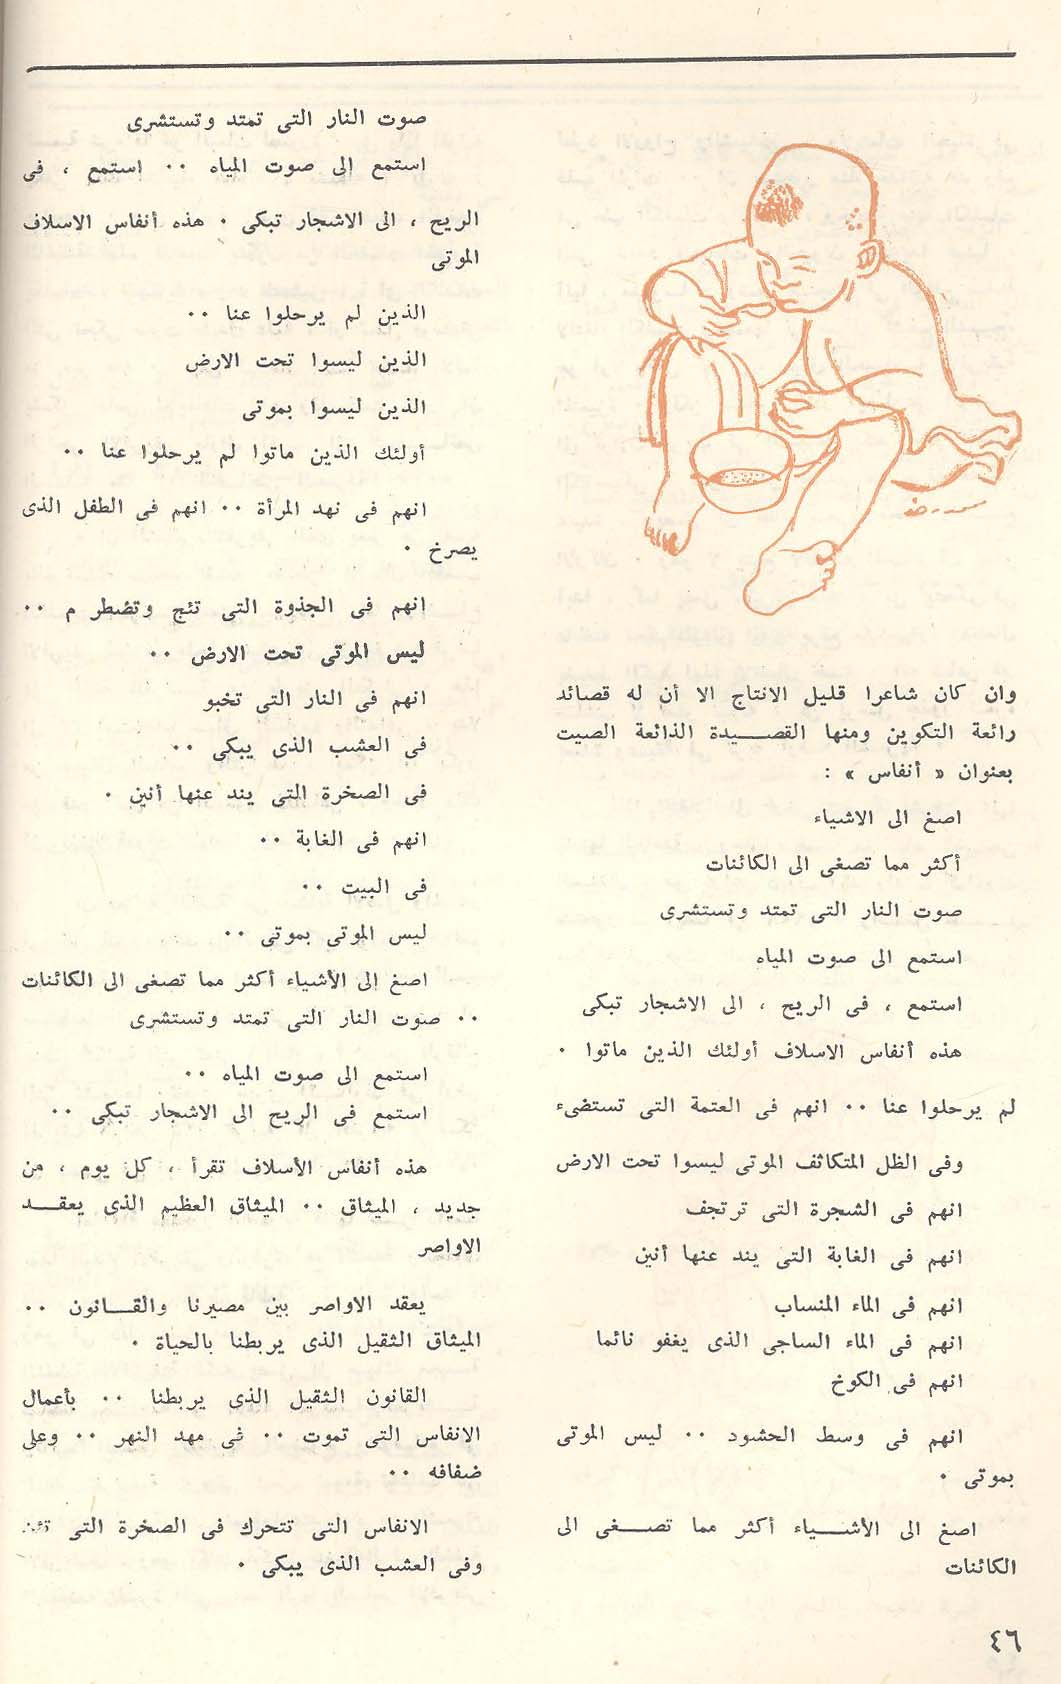 وان كان شاعرا قليل الانتاج الا أن له قصائد
رائعة التكوين ومنها القصـــيدة الذائعة الصيت
بعنوان « أنفاس » :
اصغ الى الاشياء
أكثر مما تصغى الى الكائنات
صوت النار التى تمتد وتستشرى
استمع الى صوت المياه
استمع ، فى الريح ، الى الاشجار تبكى
هذه أنفاس الاسلاف أولئك الذين ماتوا ٠
لم يرحلوا عنا ٠٠ انهم فى العتمة التى تستضىء
وفى الظل المتكاثف الموتى ليسوا تحت الارض
انهم فى الشجرة التى ترتجف
انهم فى الغابة التى يند عنها أنين
انهم فى الماء المنساب
انهم فى الماء الساجى الذى يغفو نائما
انهم فى الكوخ
انهم فى وسط الحشود ٠٠ ليس الموتى
بموتى ٠
اصغ الى الأشـــياء أكثر مما تصـــغى الى
الكائنات
صوت النار التى تمتد وتستشرى
استمع إلى صوت المياه ٠٠ استمع ، فى
الريح ، الى الاشجار تبكى ٠ هذه أنفاس الاسلاف
الموتى
الذين لم يرحلوا عنا ٠٠
الذين ليسوا تحت الارض
الذين ليسوا بموتى
أولئك الذين ماتوا لم يرحلوا عنا ٠٠
انهم فى نهد المرأة ٠٠ انهم فى الطفل الذى
يصرخ ٠
انهم فى الجذوة التى تئج وتضطر م ٠٠
ليس الموتى تحت الارض ٠٠
انهم فى النار التى تخبو
فى العشب الذى يبكى ٠٠
فى الصخرة التى يند عنها أنين ٠
انهم فى الغابة ٠٠
فى البيت ٠٠
ليس الموتى بموتى ٠٠
اصغ إلى الأشياء أكثر مما تصغى الى الكائنات
٠٠ صوت النار التى تمتد وتستشرى
استمع الى صوت المياه ٠٠
استمع فى الريح الى الاشجار تبكى ٠٠
هذه أنفاس الأسلاف تقرأ ، كل يوم ، من
جديد ، الميثاق ٠٠ الميثاق العظيم الذى يعقـــد
الاواصر
يعقد الاواصر بين مصيرنا والقـــانون ٠٠
الميثاق الثقيل الذى يربطنا بالحياة ٠
القانون الثقيل الذى يربطنا ٠٠ بأعمال
الانفاس التى تموت ٠٠ فى مهد النهر ٠٠ وعلى
ضفافه ٠٠
الانفاس التى تتحرك فى الصخرة التى تئن
وفى العشب الذى يبكى ٠
٤٦